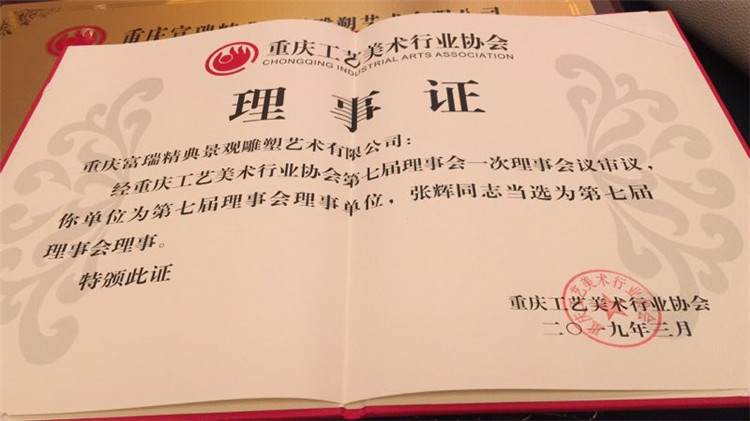 重庆富瑞精典景观雕塑艺术有限公司
重庆工艺美术行业协会
CHONGQING INDUSTRIAL ARTS ASSOCIATION
理事证
重庆富瑞精典景观雕塑艺术有限公司：
经重庆工艺美术行业协会第七届理事会一次理事会议审议，
你单位为第七届理事会理事单位，张辉同志当选为第七届
理事会理事。
特颁此证
重庆工艺美术行业协会
二〇一九年三月
重庆工艺美术行业协会